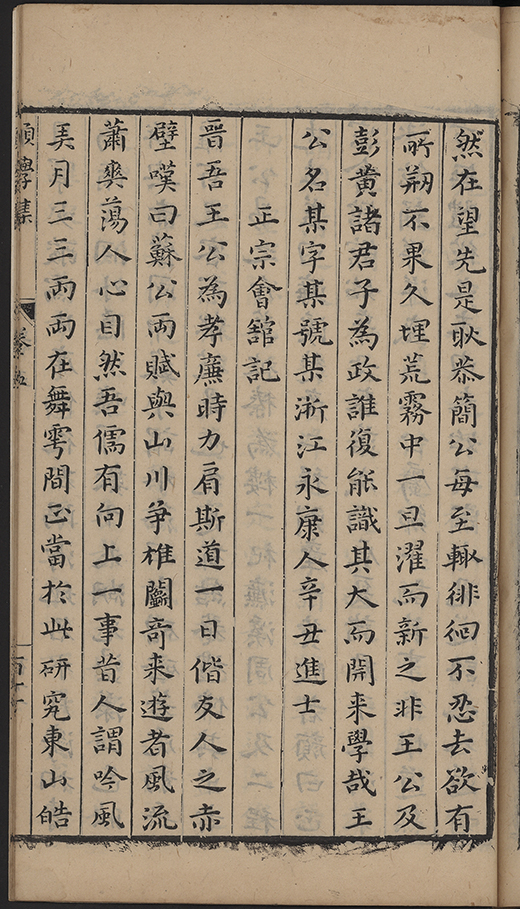 然在望先是耿恭簡公每至輒徘徊不忍去欲有
所剏不果久埋荒霧中一旦濯而新之非王公及
彭黄諸君子為政誰復能識其大而開来學哉王
公名某字某號某浙江永康人辛丑進士
正宗會舘記
晉吾王公為孝廉時力肩斯道一日偕友人之赤
壁嘆曰蘇公兩賦與山川爭雄鬬竒来遊者風流
蕭爽蕩人心目然吾儒有向上一事昔人謂吟風
弄月三三兩兩在舞雩間正當於此研究東山皓
學集
卷五